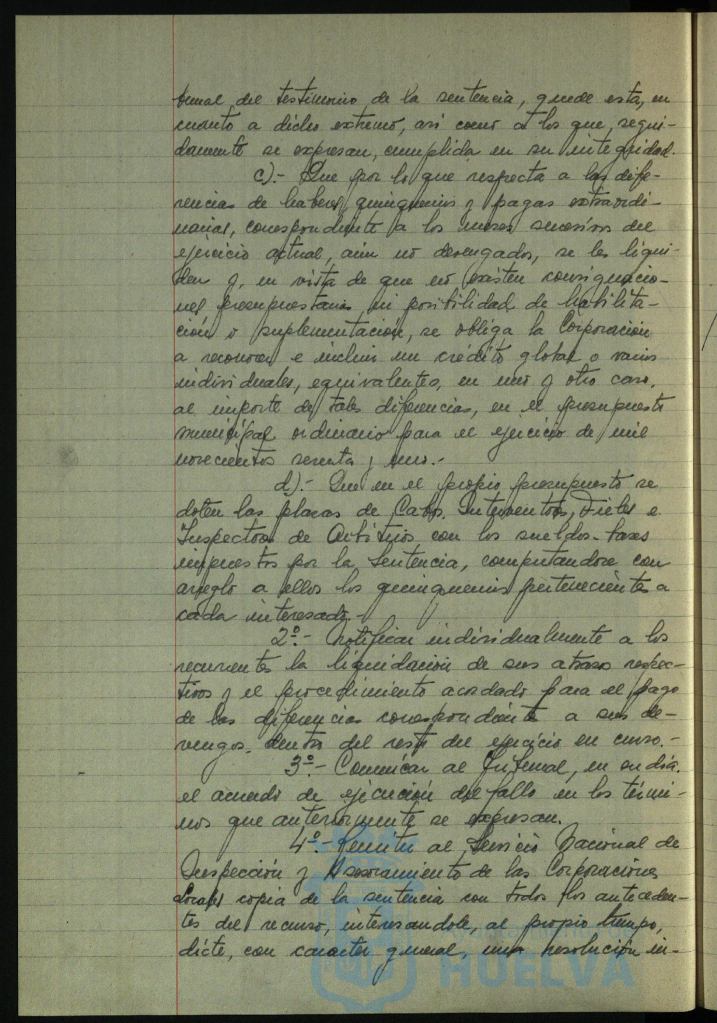 bunal del testimonio de la sentencia, quede esta, en
cuanto a dicho extremo, así como a los que, segui-
damente se expresan, cumplida en su integridad.
c).- Que por lo que respecta a las dife-
rencias de haberes, quinquenios y pagas extraordi-
narias, correspondiente a los meses sucesivos del
ejercicio actual, aún no devengados, se les liqui-
den y, en vista de que no existen consignacio-
nes presupuestarias, ni posibilidad de habilita-
ción o suplementación, se obliga la Corporación
a reconocer e incluir un crédito global o varios
individuales, equivalentes, en uno y otro caso,
al importe de tales diferencias, en el presupuesto
municipal ordinario para el ejercicio de mil
novecientos sesenta y uno.-
d).- Que en el propio presupuesto se
doten las plazas de Cabos, Interventores, Fieles e
Inspectores de Arbitrios con los sueldos-bases
impuestos por la Sentencia, computandose con
arreglo a ellos los quinquenios pertenecientes a
cada interesado.-
2º.- Notificar individualmente a los
recurrentes la liquidación de sus atrasos respec-
tivos y el procedimiento acordado para el pago
de las diferencias correspondiente a sus de-
vengos, dentro del resto del ejercicio en curso.-
3º.- Comunicar al Tribunal, en su día,
el acuerdo de ejecución del fallo en los térmi-
nos que anteriormente se expresan.
4º.- Remitir al Servicio Nacional de
Inspección y Asesoramiento de las Corporaciones
Locales copia de la sentencia con todos los anteceden-
tes del recurso, interesandole, al propio tiempo,
dicte, con carácter general, una resolución in-
HUELVA